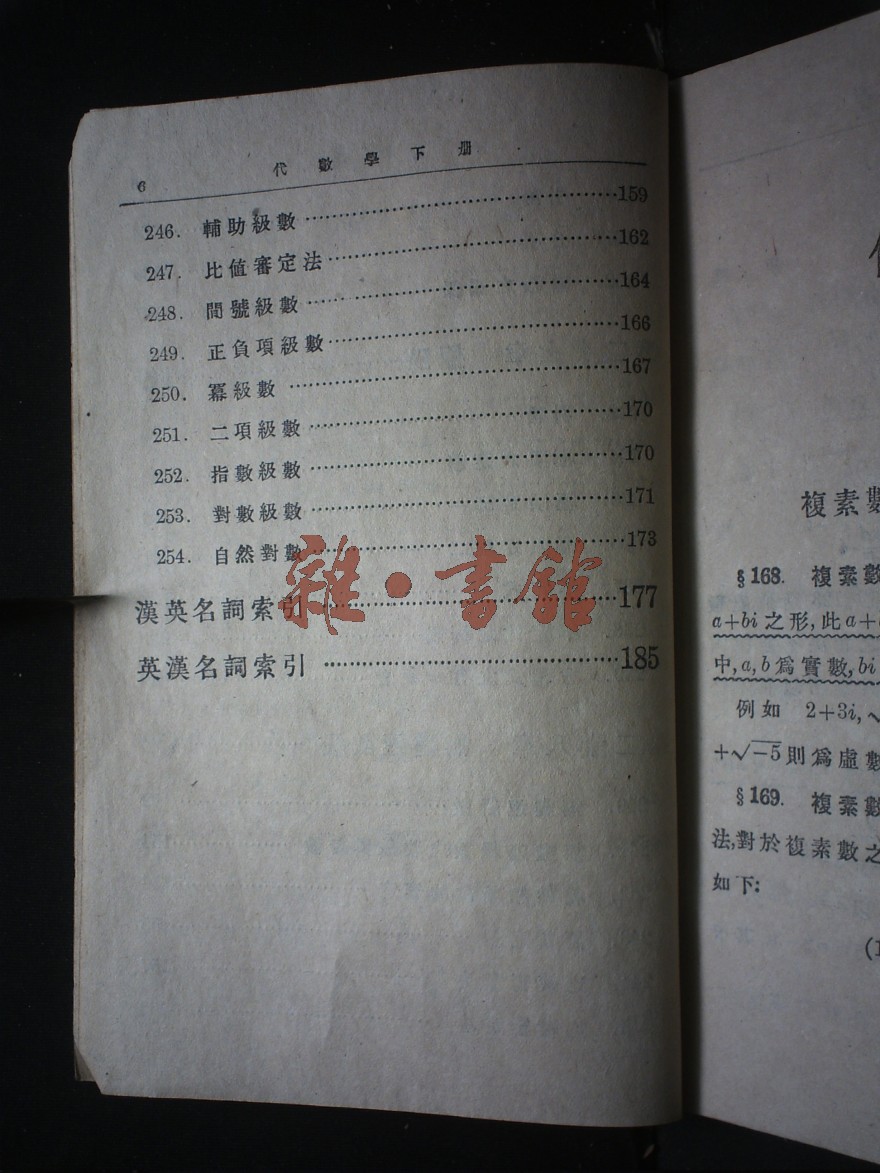 6 代數學下册
246. 輔助級數 159
247. 比值審定法 162
248. 間號級數 164
249. 正負項級數 166
250. 冪級數 167
251. 二項級數 170
252. 指數級數 170
253. 對數級數 171
254. 自然對數 173
漢英名詞索引 177
英漢名詞索引 185
雜·書館
複素數
§168. 複素數
a+bi之形,此a+
中,a,b爲實數,bi
例如 2+3i,√
+√-5則爲虛數
§169. 複素數
法,對於複素數之
如下:
(1